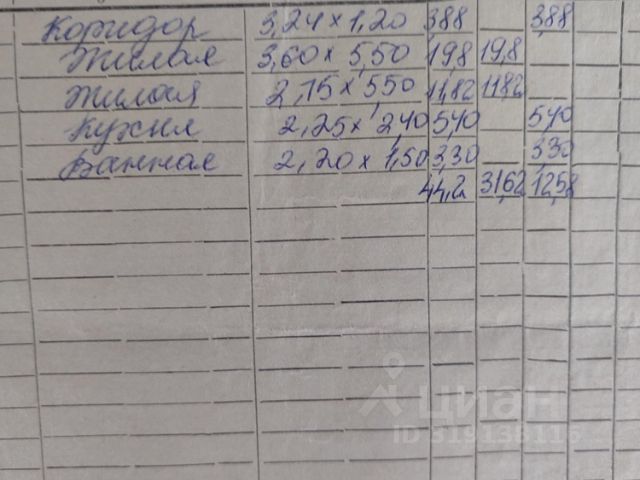 Коридор 3,24 х 1,20 3,88 3,88
Жилая 3,60 х 5,50 19,8 19,8
Жилая 2,15 х 5,50 11,82 11,82
Кухня 2,25 х 2,40 5,40 5,40
Ванная 2,20 х 1,50 3,30 3,30
44,2 31,62 12,58
циан
ID 319138116